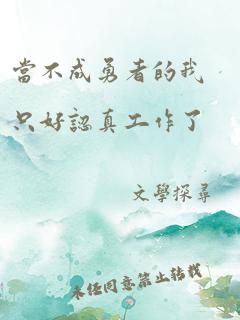 當不成勇者的我
只好認真工作了
文學探尋
未經同意禁止轉載